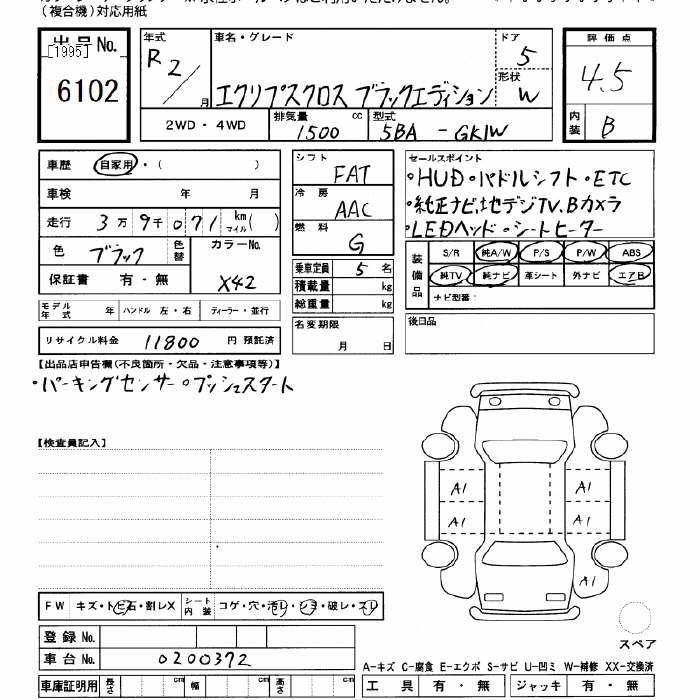 (複合機)対応用紙
出品No.
[1995]
6102
年式 R2/月
車名・グレード
エクリプスクロス ブラックエディション
ドア 5
形状 W
2WD・4WD
排気量 1500 cc
型式 5BA - GK1W
評価点 4.5
内装 B
車歴 自家用・( )
車検 年 月
走行 3万9千071 km マイル( )
色 ブラック 色替
カラーNo. X42
保証書 有・無
モデル年式 年 ハンドル 左・右 ディーラー・並行
リサイクル料金 11800 円 預託済
シフト FAT
冷房 AAC
燃料 G
乗車定員 5 名
積載量 kg
総重量 kg
名変期限 月 日
セールスポイント
・HUD・パドルシフト・ETC
・純正ナビ,地デジTV.Bカメラ
・LEDヘッド・シートヒーター
装備品
S/R 純A/W P/S P/W ABS
純TV 純ナビ 革シート 外ナビ エアB
ナビ型番:
後日品
【出品店申告欄(不良箇所・欠品・注意事項等)】
・パーキングセンサー・プッシュスタート
【検査員記入】
A1 A1
A1 A1
A1
スペア
FW キズ・トビ石・割レX シート内装 コゲ・穴・汚レ・シミ・破レ・スレ
登録No.
車台No. 0200372
車庫証明用 長さ cm 幅 cm 高さ cm
A-キズ C-腐食 E-エクボ S-サビ U-凹ミ W-補修 XX-交換済
工具 有・無 ジャッキ 有・無